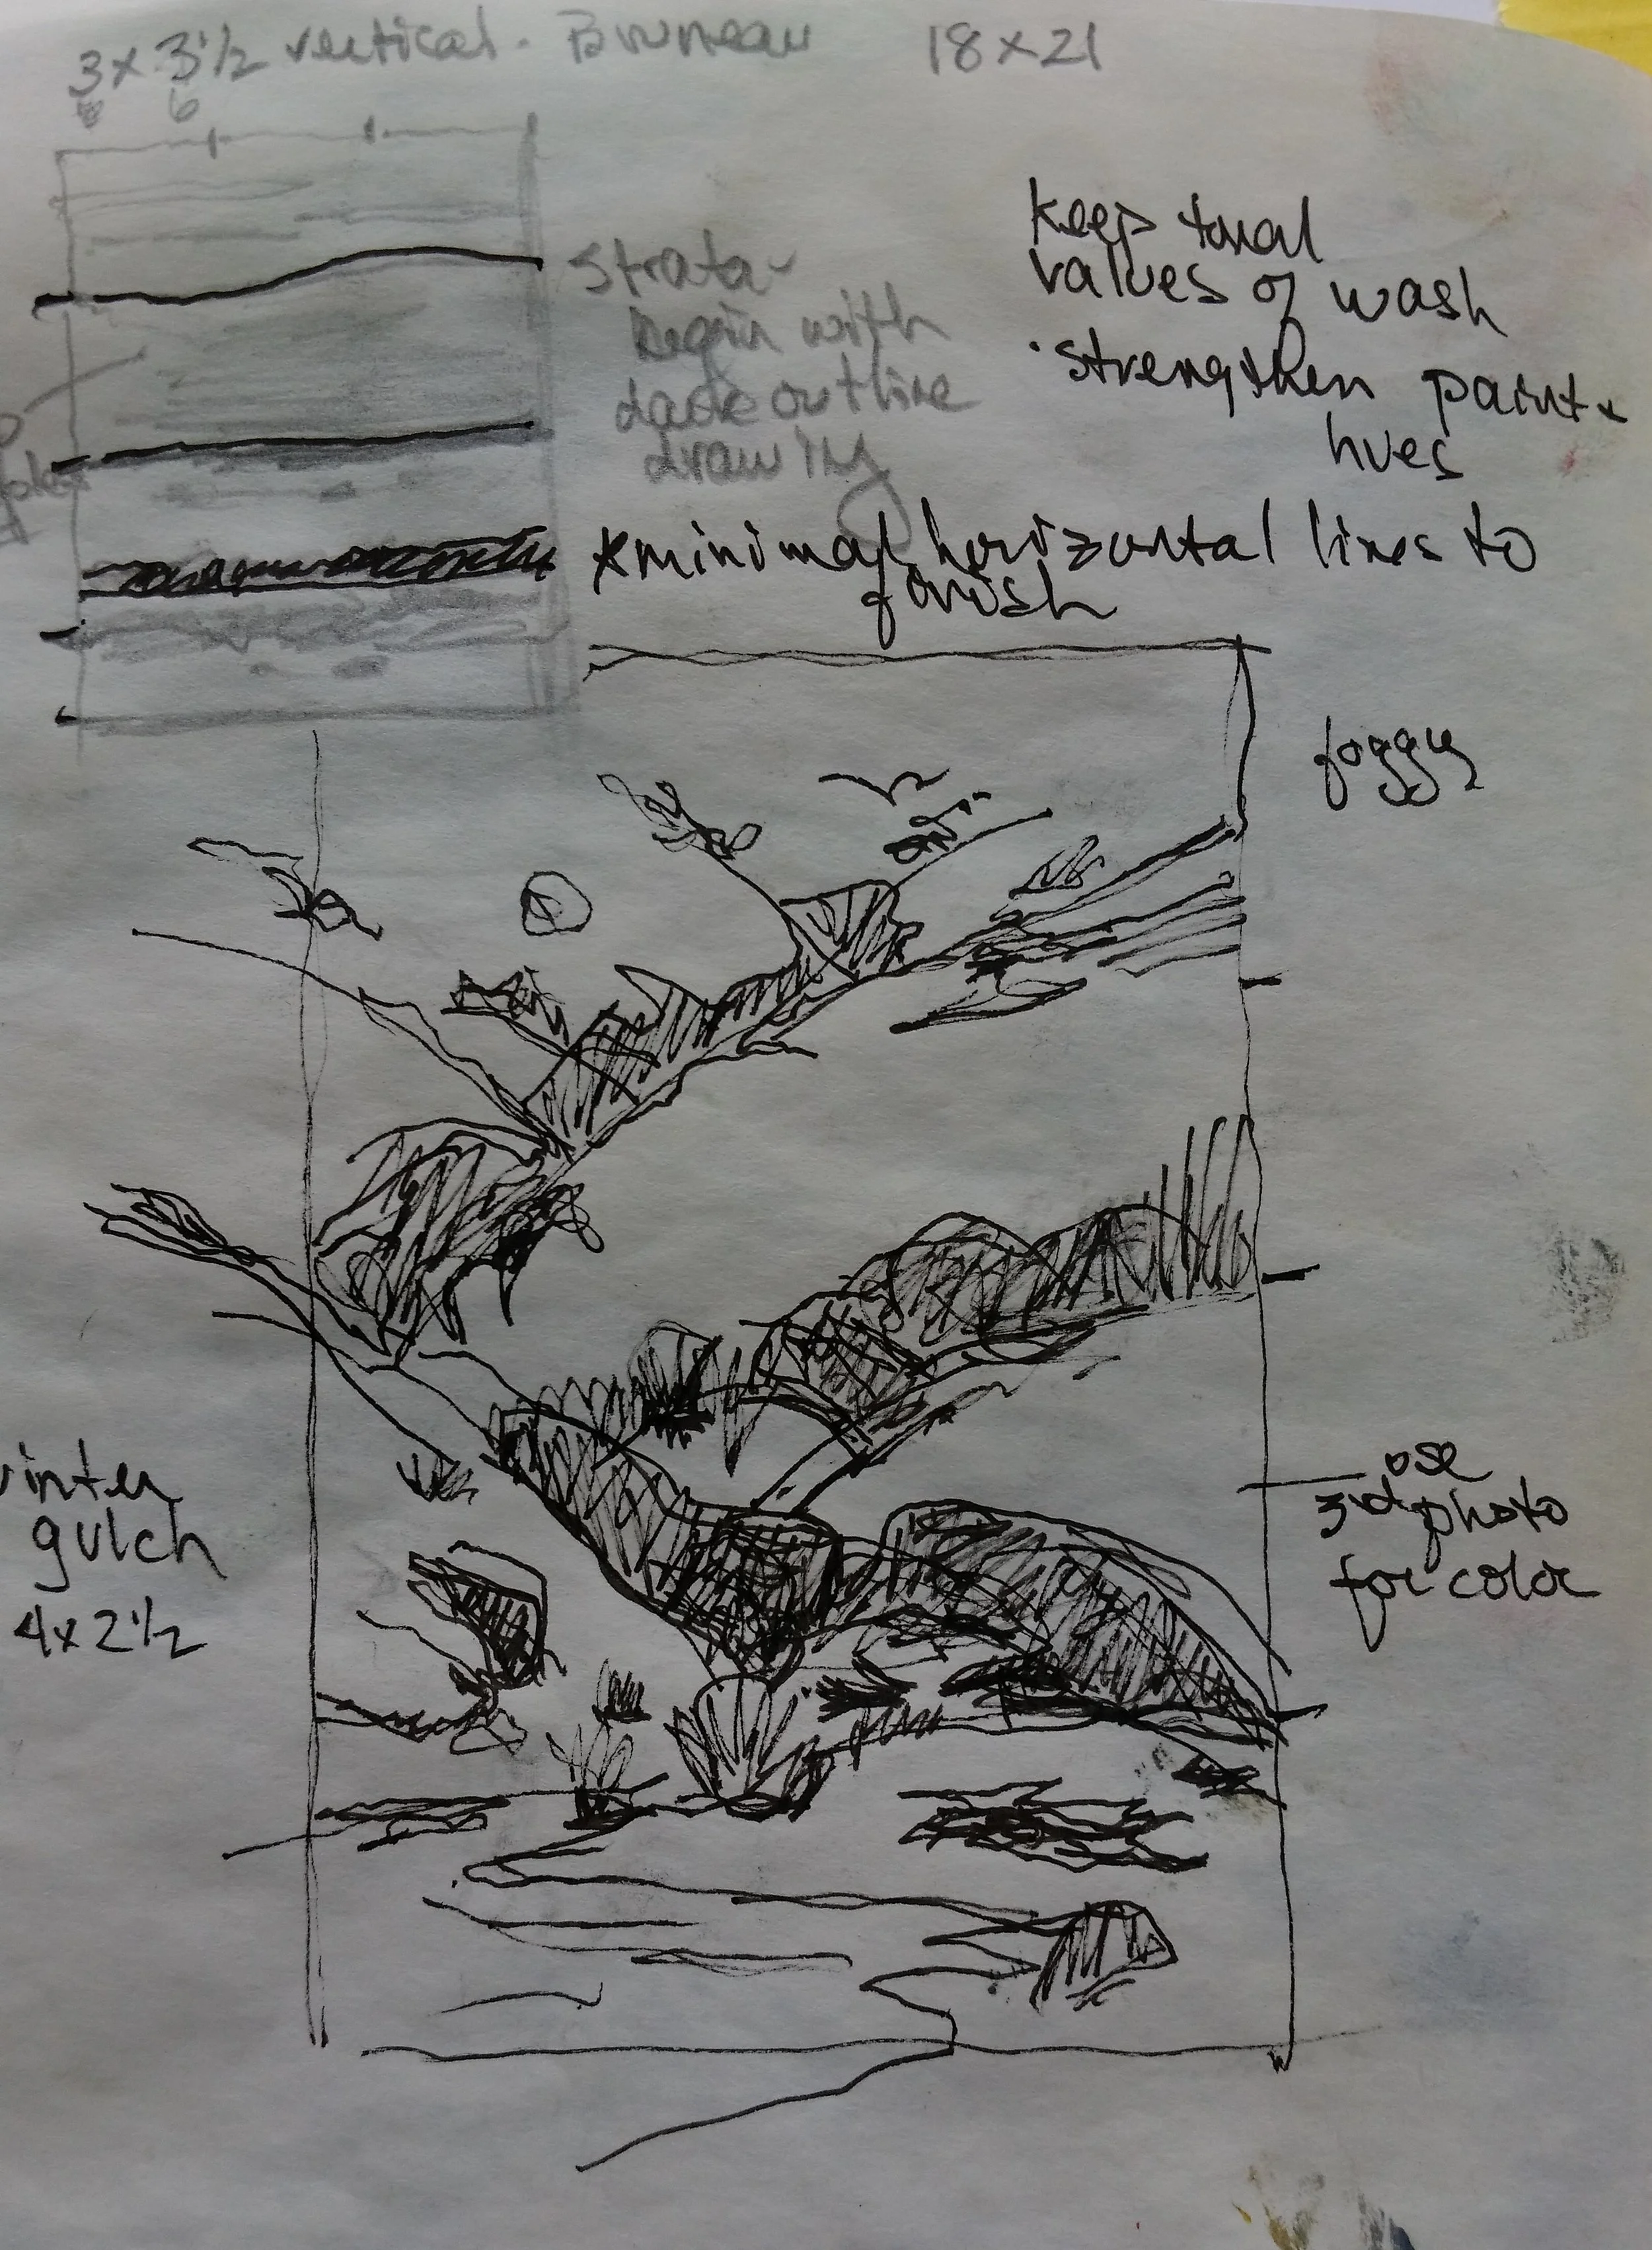 3 x 3 1/2 vertical. Bruneau 18 x 21
6
strata-
begin with
dark outline
drawing
keep tonal
values of wash
· strengthen paint +
hues
* minimal horizontal lines to
finish
foggy
winter
gulch
4 x 2 1/2
use
3rd photo
for color